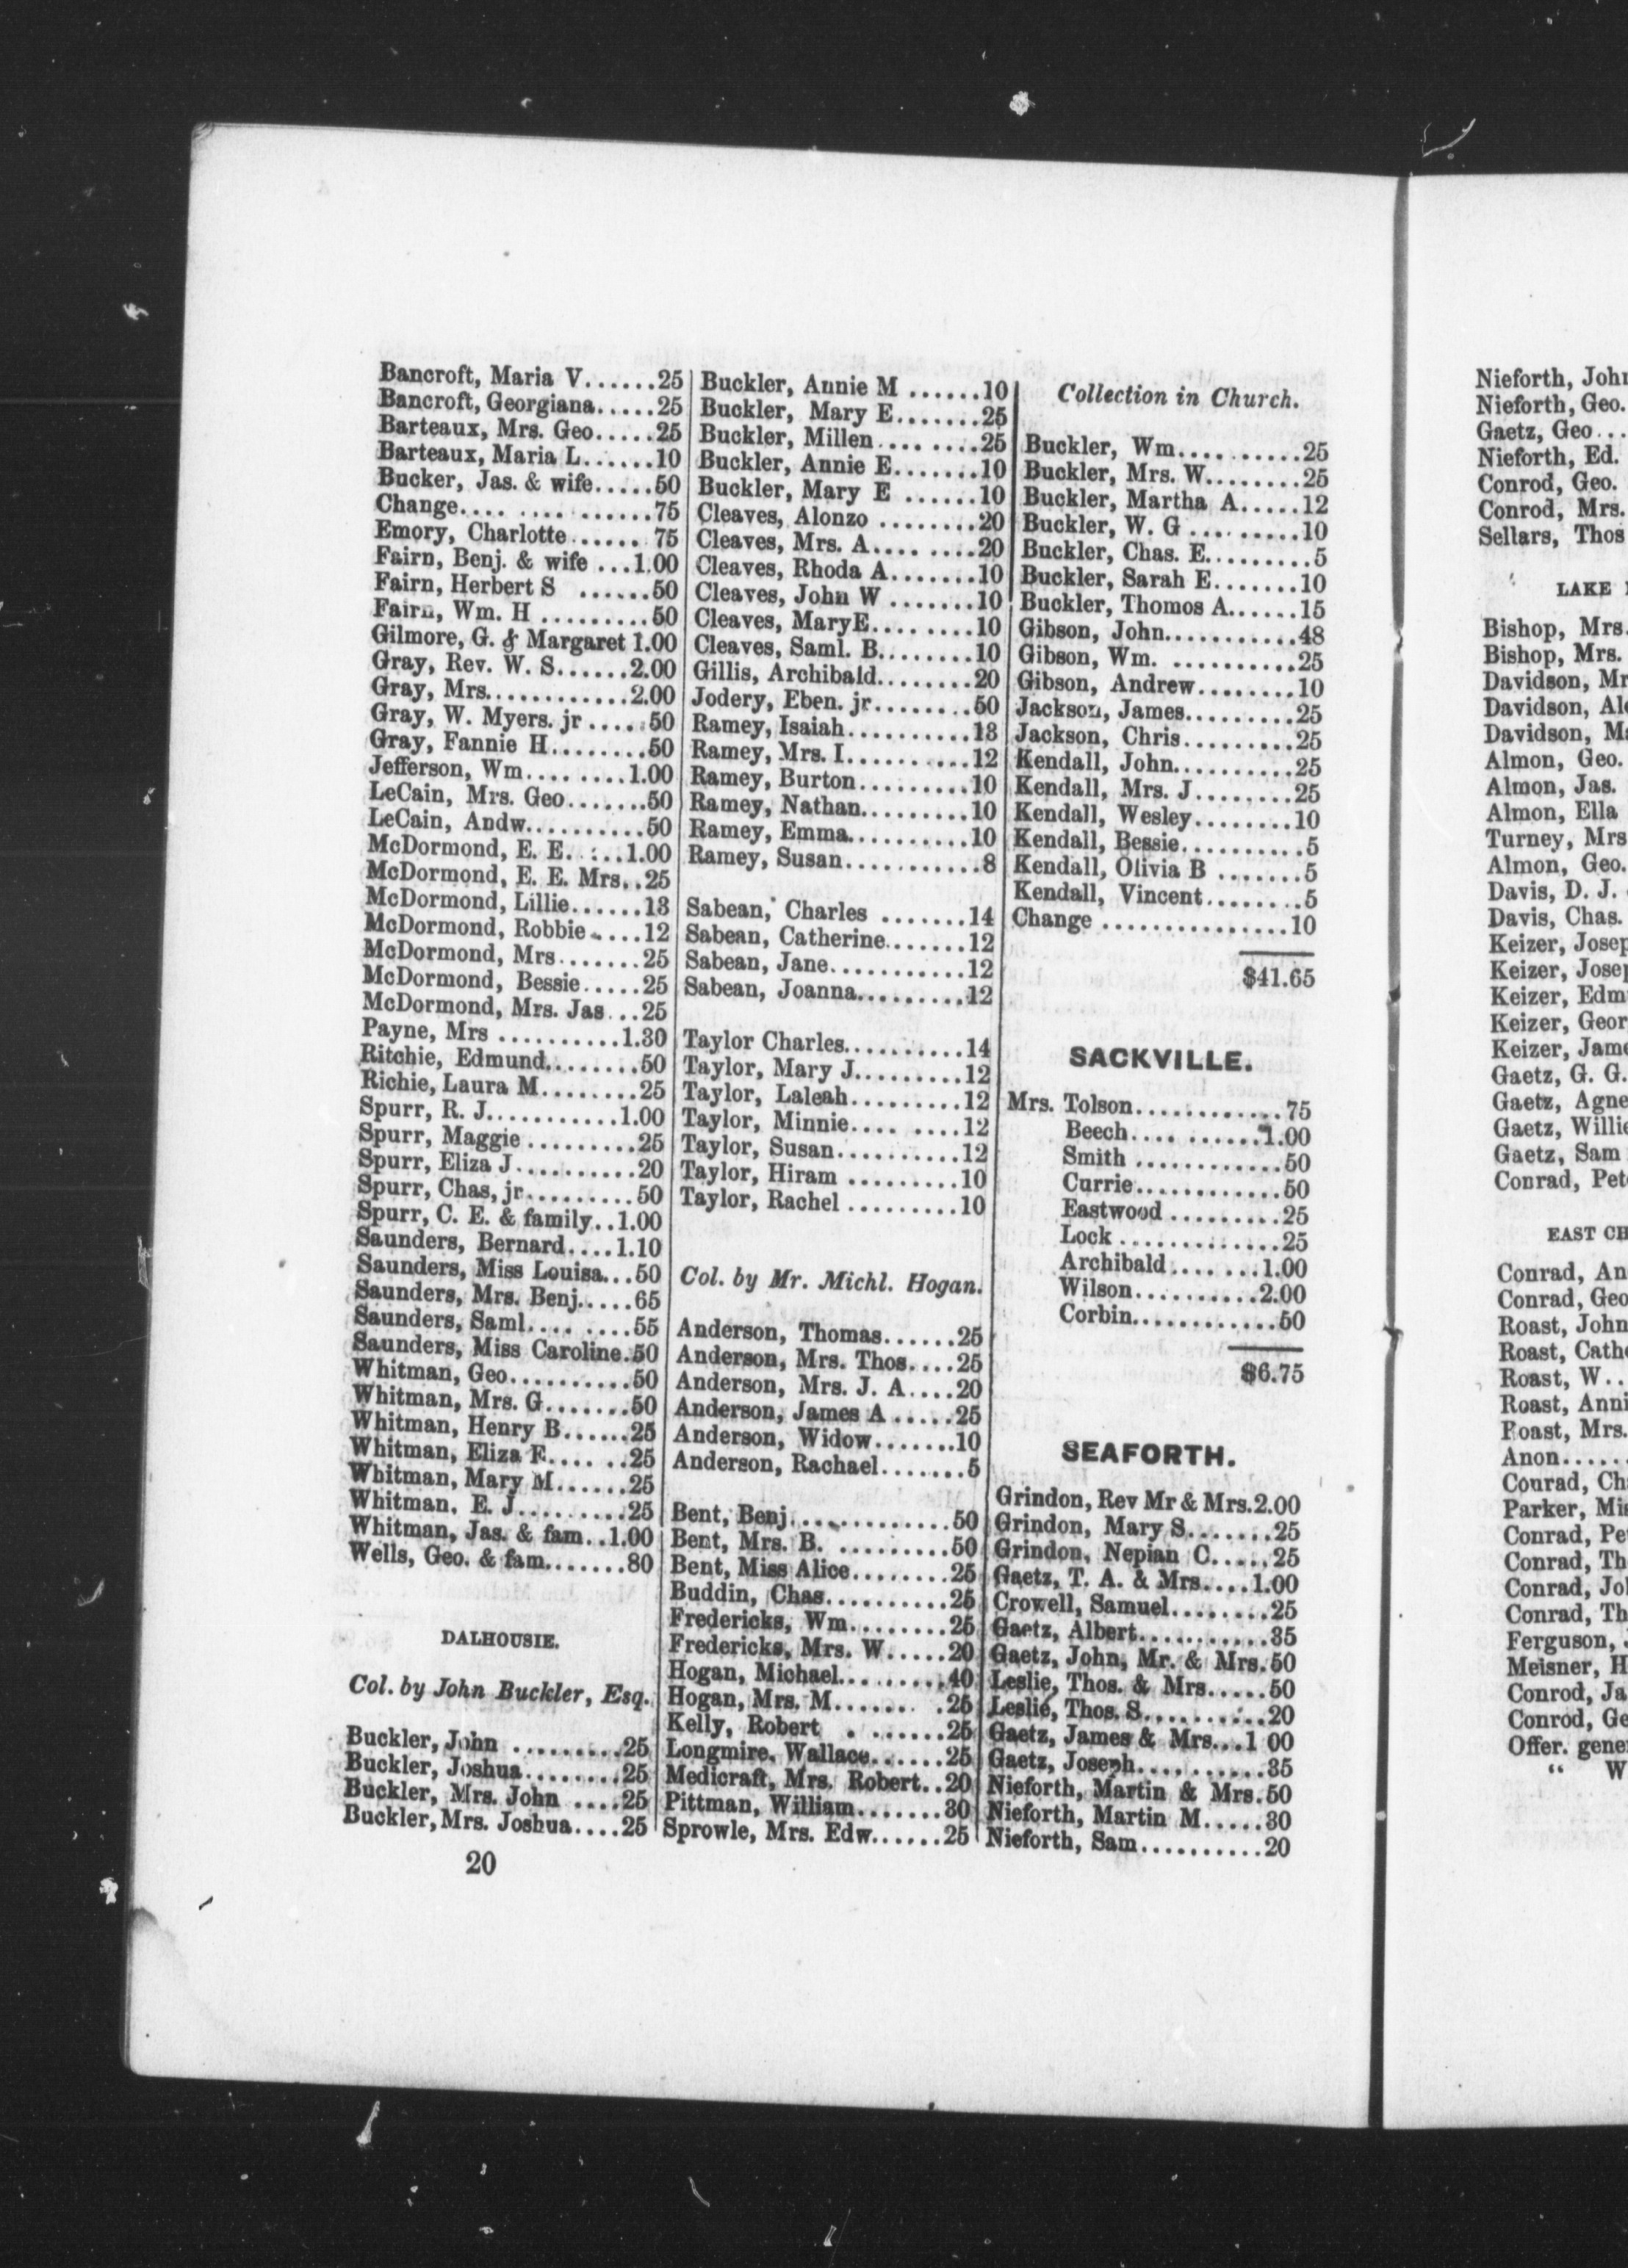 Bancroft, Maria V......25
Bancroft, Georgiana.....25
Barteaux, Mrs. Geo.....25
Barteaux, Maria L......10
Bucker, Jas. & wife.....50
Change.... .... ......75
Emory, Charlotte...... 75
Fairn, Benj. & wife ...1.00
Fairn, Herbert S ......50
Fairn, Wm. H .........50
Gilmore, G. & Margaret 1.00
Gray, Rev. W. S......2.00
Gray, Mrs............2.00
Gray, W. Myers. jr .... 50
Gray, Fannie H........50
Jefferson, Wm........1.00
LeCain, Mrs. Geo.......50
LeCain, Andw..........50
McDormond, E. E.....1.00
McDormond, E. E. Mrs..25
McDormond, Lillie......13
McDormond, Robbie.....12
McDormond, Mrs.......25
McDormond, Bessie.....25
McDormond, Mrs. Jas...25
Payne, Mrs ..........1.30
Ritchie, Edmund........50
Richie, Laura M........25
Spurr, R. J...........1.00
Spurr, Maggie .........25
Spurr, Eliza J..........20
Spurr, Chas, jr.........50
Spurr, C. E. & family..1.00
Saunders, Bernard....1.10
Saunders, Miss Louisa...50
Saunders, Mrs. Benj.....65
Saunders, Saml.... ....55
Saunders, Miss Caroline.50
Whitman, Geo..........50
Whitman, Mrs. G.......50
Whitman, Henry B......25
Whitman, Eliza F.... ..25
Whitman, Mary M......25
Whitman. E. J.........25
Whitman, Jas. & fam..1.00
Wells, Geo. & fam.......80
DALHOUSIE.
Col. by John Buckler, Esq.
Buckler, John .........25
Buckler, Joshua........25
Buckler, Mrs. John ....25
Buckler, Mrs. Joshua....25
20
Buckler, Annie M ......10
Buckler, Mary E.......25
Buckler, Millen.... ....25
Buckler, Annie E.......10
Buckler, Mary E ......10
Cleaves, Alonzo ........20
Cleaves, Mrs. A.... ....20
Cleaves, Rhoda A.......10
Cleaves, John W .......10
Cleaves, MaryE.........10
Cleaves, Saml. B........10
Gillis, Archibald........20
Jodery, Eben. jr........50
Ramey, Isaiah..........13
Ramey, Mrs. I..........12
Ramey, Burton.........10
Ramey, Nathan.........10
Ramey, Emma..........10
Ramey, Susan...........8
Sabean, Charles .......14
Sabean, Catherine.......12
Sabean, Jane...........12
Sabean, Joanna.........12
Taylor Charles..........14
Taylor, Mary J.........12
Taylor, Laleah.........12
Taylor, Minnie.... ....12
Taylor, Susan..........12
Taylor, Hiram .........10
Taylor, Rachel .........10
Col. by Mr. Michl. Hogan.
Anderson, Thomas......25
Anderson, Mrs. Thos....25
Anderson, Mrs. J. A....20
Anderson, James A .....25
Anderson, Widow.......10
Anderson, Rachael.......5
Bent, Benj.............50
Bent, Mrs. B. .........50
Bent, Miss Alice........25
Buddin, Chas..........25
Fredericks, Wm........25
Fredericks, Mrs. W.....20
Hogan, Michael.........40
Hogan, Mrs. M....... .25
Kelly, Robert . ......25
Longmire, Wallace......25
Medicraft, Mrs. Robert..20
Pittman, William.......30
Sprowle, Mrs. Edw......25
Collection in Church.
Buckler, Wm..........25
Buckler, Mrs. W........25
Buckler, Martha A.....12
Buckler, W. G .........10
Buckler, Chas. E.........5
Buckler, Sarah E.......10
Buckler, Thomos A......15
Gibson, John...........48
Gibson, Wm. ..........25
Gibson, Andrew........10
Jackson, James.........25
Jackson, Chris.........25
Kendall, John..........25
Kendall, Mrs. J........25
Kendall, Wesley........10
Kendall, Bessie..........5
Kendall, Olivia B .......5
Kendall, Vincent........5
Change ...............10
$41.65
SACKVILLE.
Mrs. Tolson............75
Beech.... .......1.00
Smith ............50
Currie............50
Eastwood .........25
Lock .............25
Archibald.... ...1.00
Wilson..........2.00
Corbin............50
$6.75
SEAFORTH.
Grindon, Rev Mr & Mrs.2.00
Grindon, Mary S.......25
Grindon, Nepian C.....25
Gaetz, T. A. & Mrs....1.00
Crowell, Samuel........25
Gaetz, Albert...........35
Gaetz, John, Mr. & Mrs.50
Leslie, Thos. & Mrs.....50
Leslie, Thos. S..........20
Gaetz, James & Mrs...1 00
Gaetz, Joseph..........35
Nieforth, Martin & Mrs.50
Nieforth, Martin M.....30
Nieforth, Sam..........20
Nieforth, John
Nieforth, Geo.
Gaetz, Geo...
Nieforth, Ed.
Conrod, Geo.
Conrod, Mrs.
Sellars, Thos
LAKE
Bishop, Mrs.
Bishop, Mrs.
Davidson,
Davidson,
Davidson,
Almon, Geo.
Almon, Jas.
Almon, Ella
Turney, Mrs
Almon, Geo.
Davis, D. J.
Davis, Chas.
Keizer,
Keizer,
Keizer,
Keizer,
Keizer,
Gaetz, G. G.
Gaetz,
Gaetz,
Gaetz, Sam
Conrad,
EAST
Conrad,
Conrad, Geo
Roast, John
Roast,
Roast, W..
Roast,
Roast, Mrs.
Anon......
Conrad,
Parker,
Conrad,
Conrad,
Conrad,
Conrad,
Ferguson,
Meisner,
Conrod,
Conrod,
Offer.
“ W